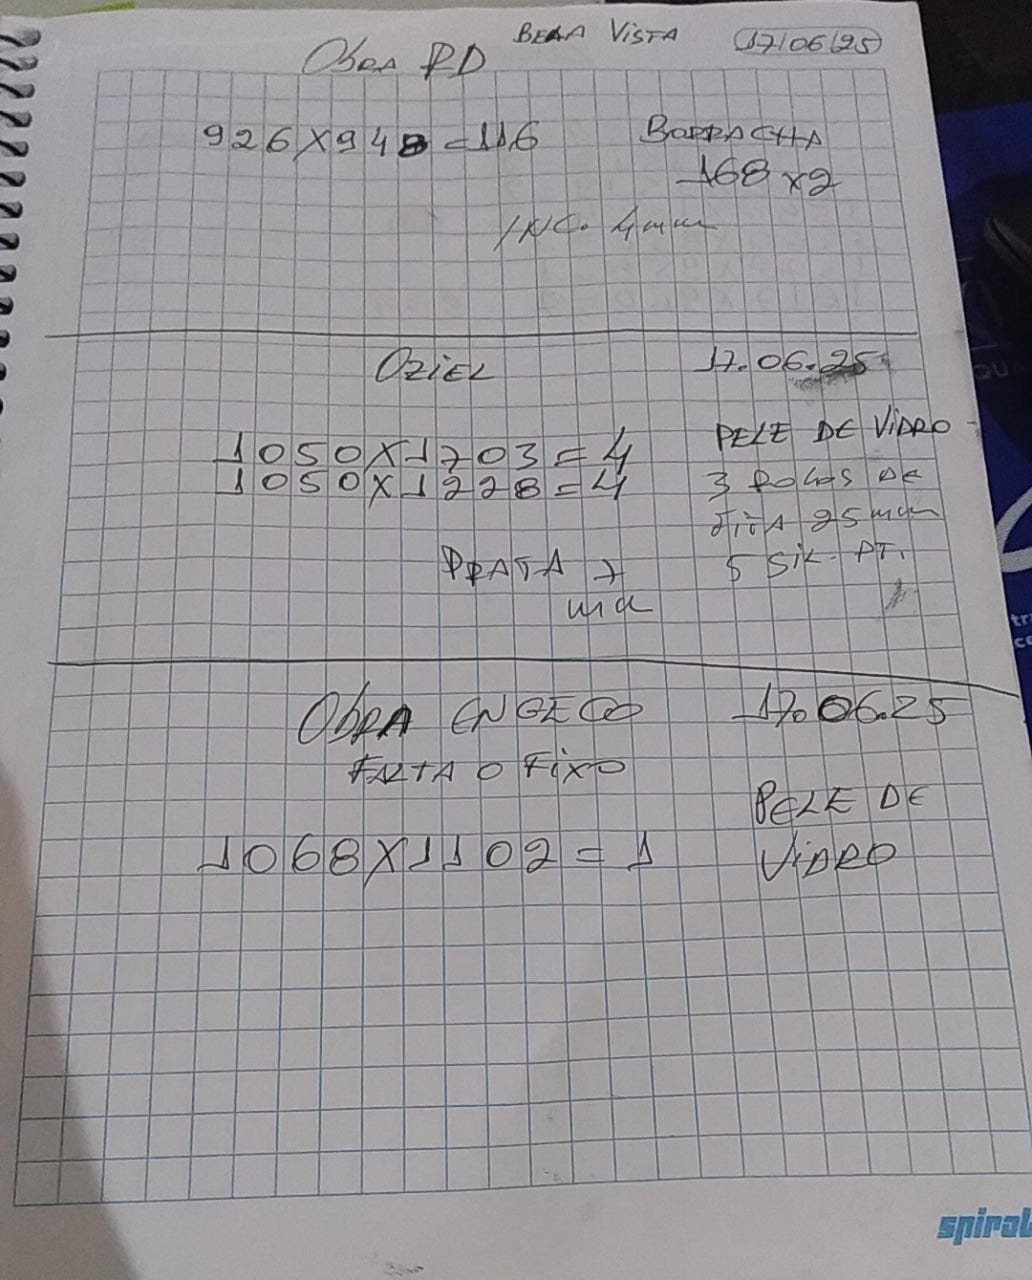 BELA VISTA 17/06/25
Obra RD
926X948=116 BORRACHA
168 x2
INC. 4mm
OZiEL 17.06.25
1050X1703=4 PELE DE ViDRO
1050X1228=4 3 ROLOS DE
FiTA 25mm
PRATA 5 SiK. PT.
ObRA ENGECO 17.06.25
FALTA O FiXO
PELE DE
1068X1102=1 ViDRO
spiral